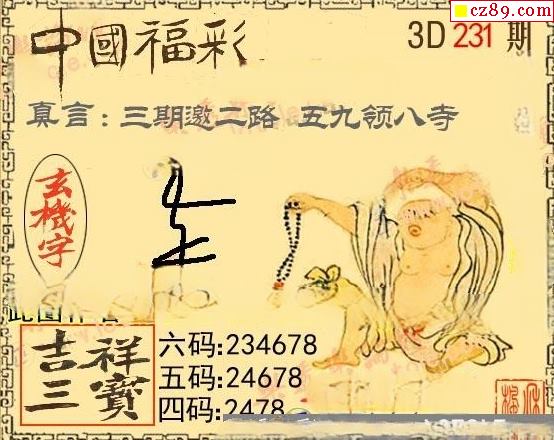 cz89.com
中國福彩
3D 231 期
真言：三期邀二路 五九领八寺
玄機字
吉祥
三寳
六码:234678
五码:24678
四码:2478